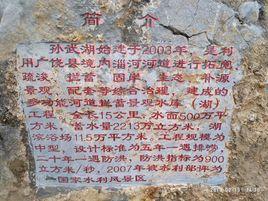 简 介
孙武湖始建于2003年，是利
用广饶县境内淄河河道进行拓宽
疏浚、拦蓄、固岸、生态、补源、
景观、配套等综合治理，建成的
多功能河道拦蓄景观水库（湖）
工程，全长15公里，水面500万平
方米，蓄水量2213万立方米，湖
滨浴场11.5万平方米。工程规模为
中型，设计标准为五年一遇排涝，
二十年一遇防洪，防洪指标为900
立方米/秒，2007年被水利部评为
国家水利风景区。